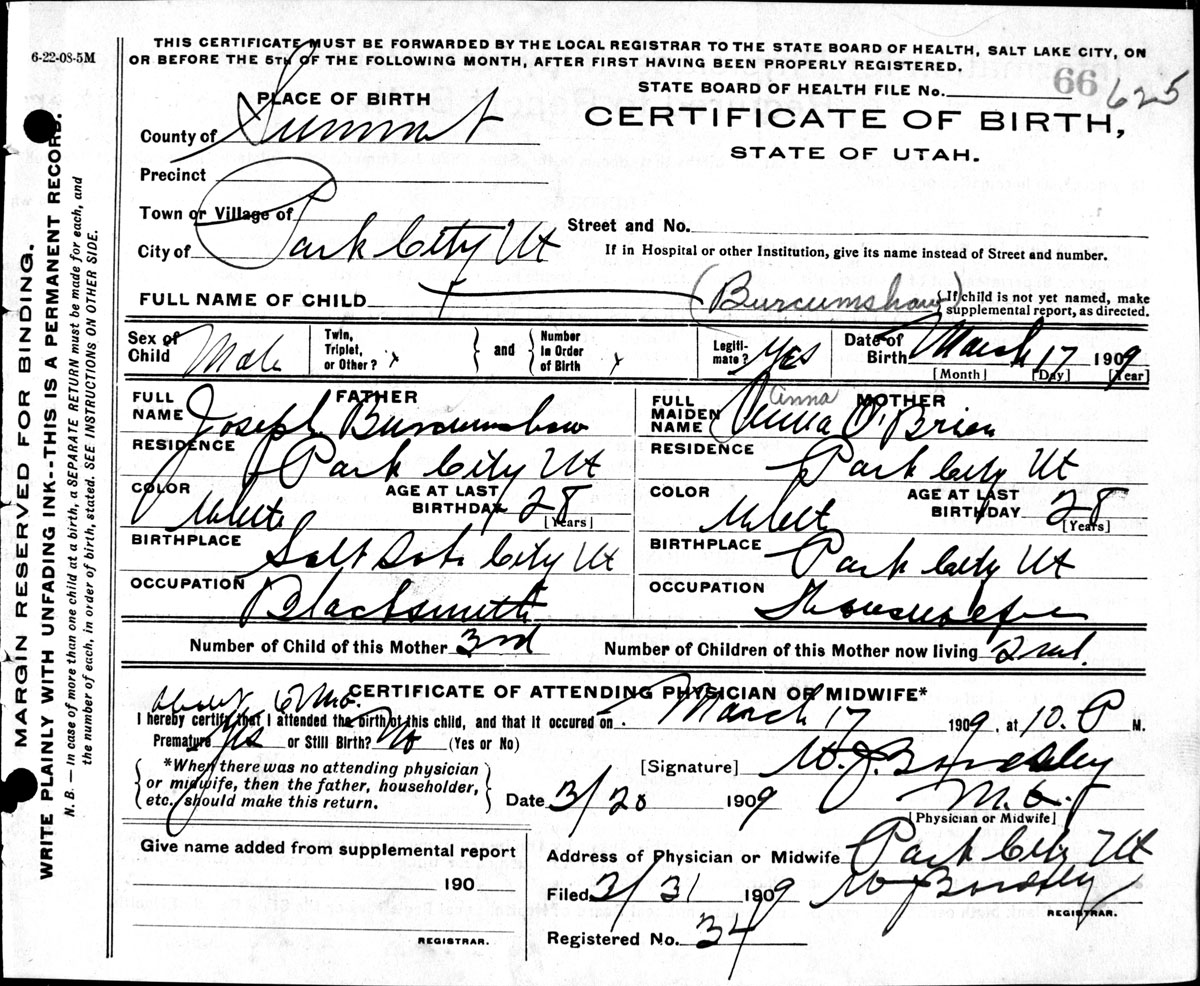 6-22-08-5M
THIS CERTIFICATE MUST BE FORWARDED BY THE LOCAL REGISTRAR TO THE STATE BOARD OF HEALTH, SALT LAKE CITY, ON
OR BEFORE THE 5TH OF THE FOLLOWING MONTH, AFTER FIRST HAVING BEEN PROPERLY REGISTERED.
STATE BOARD OF HEALTH FILE No. 66 625
PLACE OF BIRTH
CERTIFICATE OF BIRTH,
STATE OF UTAH.
County of Summit
Precinct
Town or Village of
Street and No.
City of Park City Ut
If in Hospital or other Institution, give its name instead of Street and number.
FULL NAME OF CHILD (Burcumshaw) If child is not yet named, make
supplemental report, as directed.
Sex of Child Male Twin, Triplet, or Other? x and Number In Order of Birth x Legiti-mate? Yes Date of Birth March 17 1909
[Month] [Day] [Year]
FATHER
FULL NAME Joseph Burcumshaw
RESIDENCE Park City Ut
COLOR White AGE AT LAST BIRTHDAY 28 [Years]
BIRTHPLACE Salt Lake City Ut
OCCUPATION Blacksmith
MOTHER
FULL MAIDEN NAME Anna O'Brien
Anna
RESIDENCE Park City Ut
COLOR White AGE AT LAST BIRTHDAY 28 [Years]
BIRTHPLACE Park City Ut
OCCUPATION Housewife
Number of Child of this Mother 3rd Number of Children of this Mother now living 2nd.
CERTIFICATE OF ATTENDING PHYSICIAN OR MIDWIFE*
about 6 Mo.
I hereby certify that I attended the birth of this child, and that it occured on March 17 1909, at 10. P M.
Premature Yes or Still Birth? No (Yes or No)
*When there was no attending physician
or midwife, then the father, householder,
etc. should make this return.
[Signature] W. J. Bardsley
M.D.
Date 3/20 1909 [Physician or Midwife]
Give name added from supplemental report
190
REGISTRAR.
Address of Physician or Midwife Park City Ut
Filed 3/31 1909 W J Bardsley
REGISTRAR.
Registered No. 34
MARGIN RESERVED FOR BINDING.
WRITE PLAINLY WITH UNFADING INK--THIS IS A PERMANENT RECORD.
N. B. — In case of more than one child at a birth, a SEPARATE RETURN must be made for each, and
the number of each, in order of birth, stated. SEE INSTRUCTIONS ON OTHER SIDE.